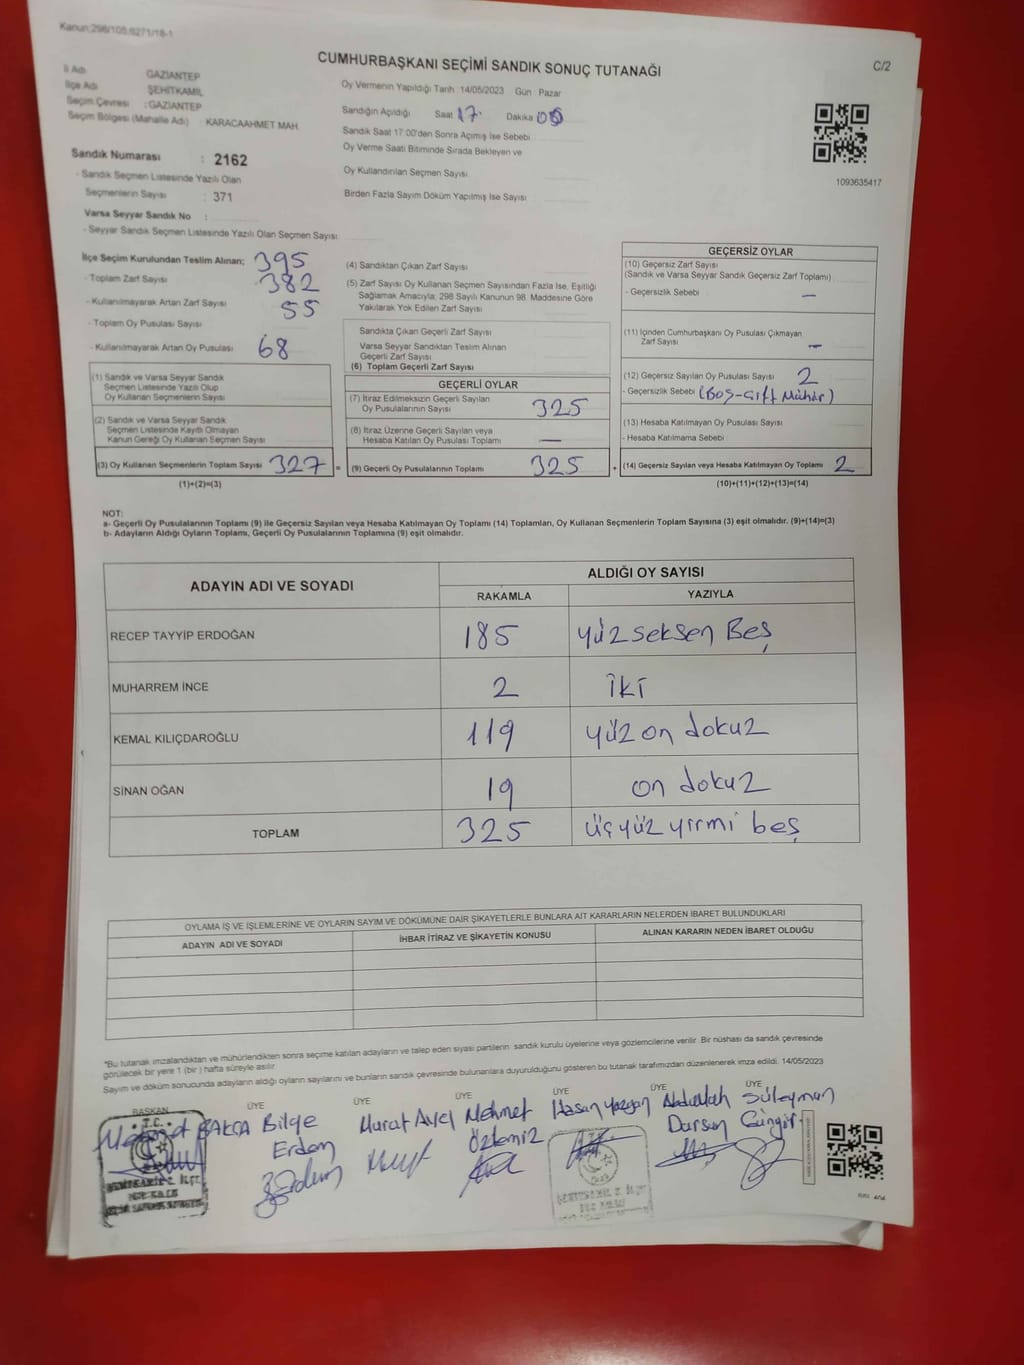 Kanun:298/105,6271/18-1
C/2
CUMHURBAŞKANI SEÇİMİ SANDIK SONUÇ TUTANAĞI
İl Adı GAZİANTEP
İlçe Adı ŞEHİTKAMİL
Seçim Çevresi : GAZİANTEP
Seçim Bölgesi (Mahalle Adı) : KARACAAHMET MAH.
Sandık Numarası : 2162
- Sandık Seçmen Listesinde Yazılı Olan
Seçmenlerin Sayısı : 371
Varsa Seyyar Sandık No :
- Seyyar Sandık Seçmen Listesinde Yazılı Olan Seçmen Sayısı
Oy Vermenin Yapıldığı Tarih :14/05/2023 Gün Pazar
Sandığın Açıldığı Saat 17 Dakika
Sandık Saat 17:00'den Sonra Açımış İse Sebebi
Oy Verme Saati Bitiminde Sırada Bekleyen ve
Oy Kullandırılan Seçmen Sayısı
Birden Fazla Sayım Döküm Yapılmış İse Sayısı
1093635417
İlçe Seçim Kurulundan Teslim Alınan; 395
- Toplam Zarf Sayısı 382
- Kullanılmayarak Artan Zarf Sayısı 55
- Toplam Oy Pusulası Sayısı
- Kullanılmayarak Artan Oy Pusulası 68
(1) Sandık ve Varsa Seyyar Sandık
Seçmen Listesinde Yazılı Olup
Oy Kullanan Seçmenlerin Sayısı
(2) Sandık ve Varsa Seyyar Sandık
Seçmen Listesinde Kayıtlı Olmayan
Kanun Gereği Oy Kullanan Seçmen Sayısı
(3) Oy Kullanan Seçmenlerin Toplam Sayısı 327 =
(1)+(2)=(3)
(4) Sandıktan Çıkan Zarf Sayısı
(5) Zarf Sayısı Oy Kullanan Seçmen Sayısından Fazla İse, Eşitliği
Sağlamak Amacıyla; 298 Sayılı Kanunun 98. Maddesine Göre
Yakılarak Yok Edilen Zarf Sayısı
Sandıkta Çıkan Geçerli Zarf Sayısı
Varsa Seyyar Sandıktan Teslim Alınan
Geçerli Zarf Sayısı
(6) Toplam Geçerli Zarf Sayısı
GEÇERLİ OYLAR
(7) İtiraz Edilmeksizin Geçerli Sayılan
Oy Pusulalarının Sayısı 325
(8) İtiraz Üzerine Geçerli Sayılan veya
Hesaba Katılan Oy Pusulası Toplamı —
(9) Geçerli Oy Pusulalarının Toplamı 325 +
GEÇERSİZ OYLAR
(10) Geçersiz Zarf Sayısı
(Sandık ve Varsa Seyyar Sandık Geçersiz Zarf Toplamı)
- Geçersizlik Sebebi —
(11) İçinden Cumhurbaşkanı Oy Pusulası Çıkmayan
Zarf Sayısı —
(12) Geçersiz Sayılan Oy Pusulası Sayısı 2
- Geçersizlik Sebebi (Boş-Çift Mühür)
(13) Hesaba Katılmayan Oy Pusulası Sayısı
- Hesaba Katılmama Sebebi
(14) Geçersiz Sayılan veya Hesaba Katılmayan Oy Toplamı 2
(10)+(11)+(12)+(13)=(14)
NOT:
a- Geçerli Oy Pusulalarının Toplamı (9) ile Geçersiz Sayılan veya Hesaba Katılmayan Oy Toplamı (14) Toplamları, Oy Kullanan Seçmenlerin Toplam Sayısına (3) eşit olmalıdır. (9)+(14)=(3)
b- Adayların Aldığı Oyların Toplamı, Geçerli Oy Pusulalarının Toplamına (9) eşit olmalıdır.
ADAYIN ADI VE SOYADI ALDIĞI OY SAYISI
RAKAMLA YAZIYLA
RECEP TAYYİP ERDOĞAN 185 yüz seksen Beş
MUHARREM İNCE 2 iki
KEMAL KILIÇDAROĞLU 119 yüz on dokuz
SİNAN OĞAN 19 on dokuz
TOPLAM 325 üçyüz yirmi beş
OYLAMA İŞ VE İŞLEMLERİNE VE OYLARIN SAYIM VE DÖKÜMÜNE DAİR ŞİKAYETLERLE BUNLARA AİT KARARLARIN NELERDEN İBARET BULUNDUKLARI
ADAYIN ADI VE SOYADI İHBAR İTİRAZ VE ŞİKAYETİN KONUSU ALINAN KARARIN NEDEN İBARET OLDUĞU
*Bu tutanak imzalandıktan ve mühürlendikten sonra seçime katılan adayların ve talep eden siyasi partilerin sandık kurulu üyelerine veya gözlemcilerine verilir. Bir nüshası da sandık çevresinde
görülecek bir yere 1 (bir ) hafta süreyle asılır.
Sayım ve döküm sonucunda adayların aldığı oyların sayılarını ve bunların sandık çevresinde bulunanlara duyurulduğunu gösteren bu tutanak tarafımızdan düzenlenerek imza edildi. 14/05/2023
BAŞKAN ÜYE ÜYE ÜYE ÜYE ÜYE ÜYE
Bilge Erdem
Murat Avcı
Mehmet Özdemiz
Hasan Yozgan
Abdullah Dursun
Süleyman Güngör
T.C.